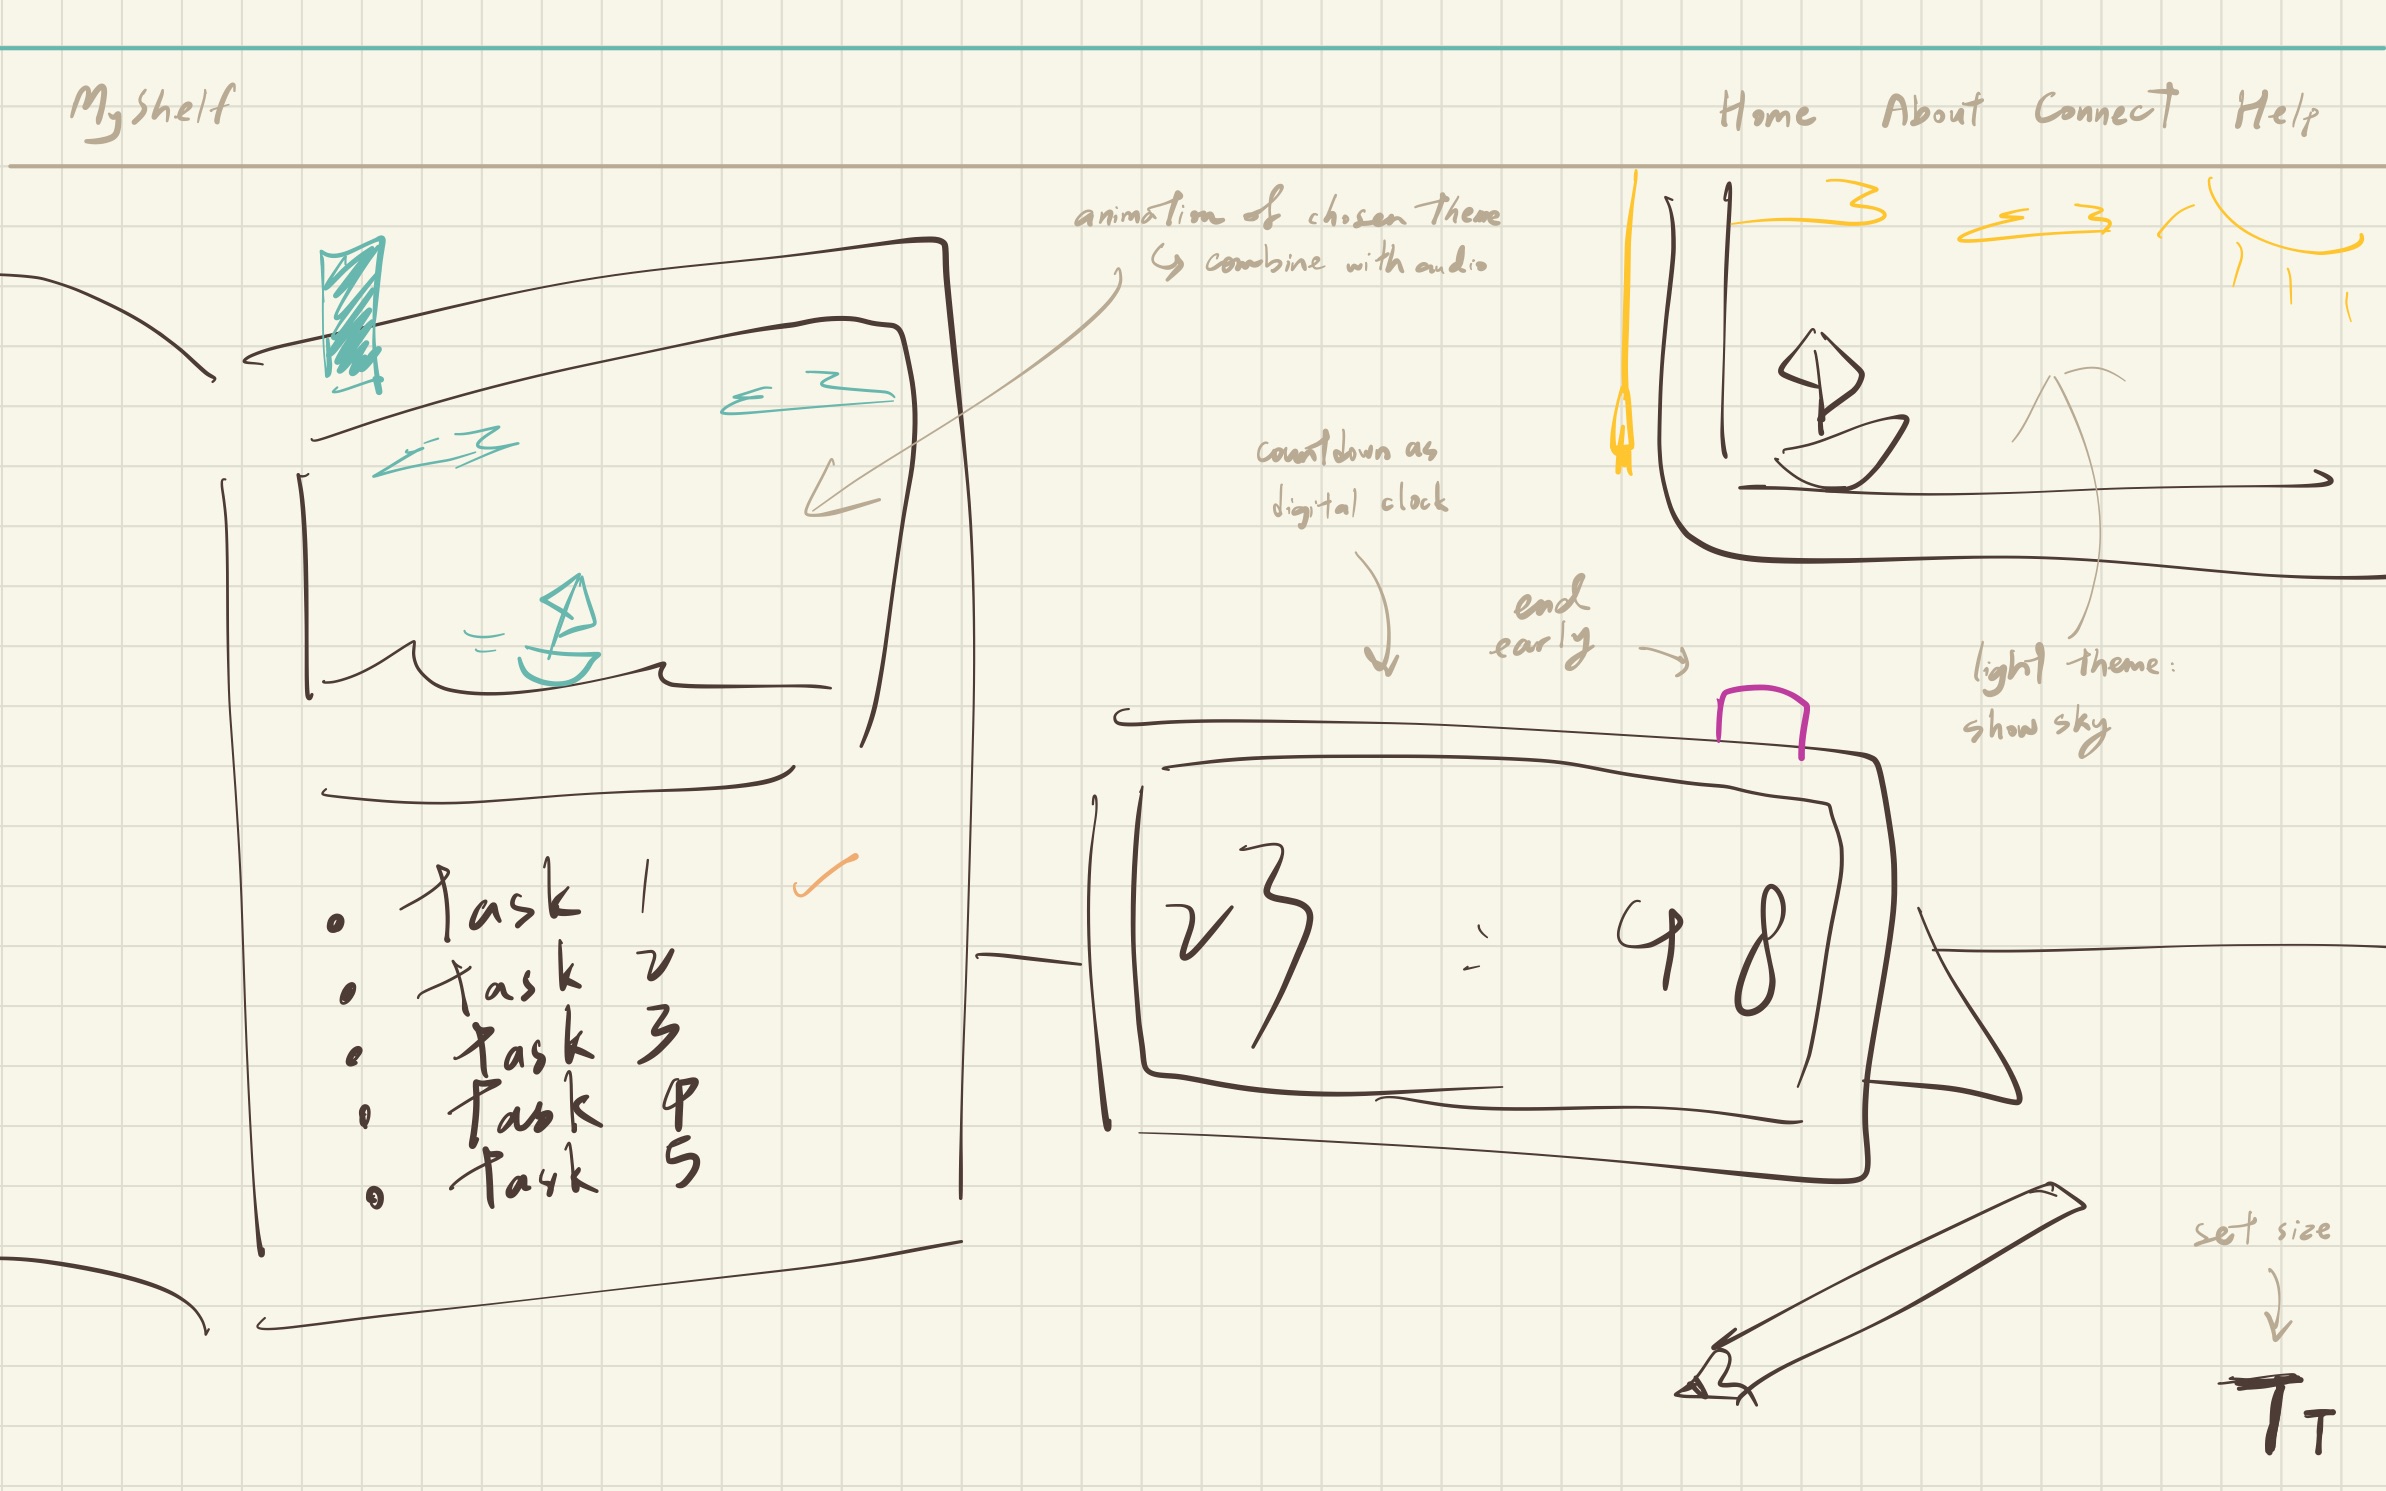 Myshelf
Home About Connect Help
animation of chosen theme
↳ combine with audio
countdown as
digital clock
end
early
light theme:
show sky
• Task 1 ✓
• Task 2
• Task 3
• Task 4
• Task 5
23 : 48
set size
TT